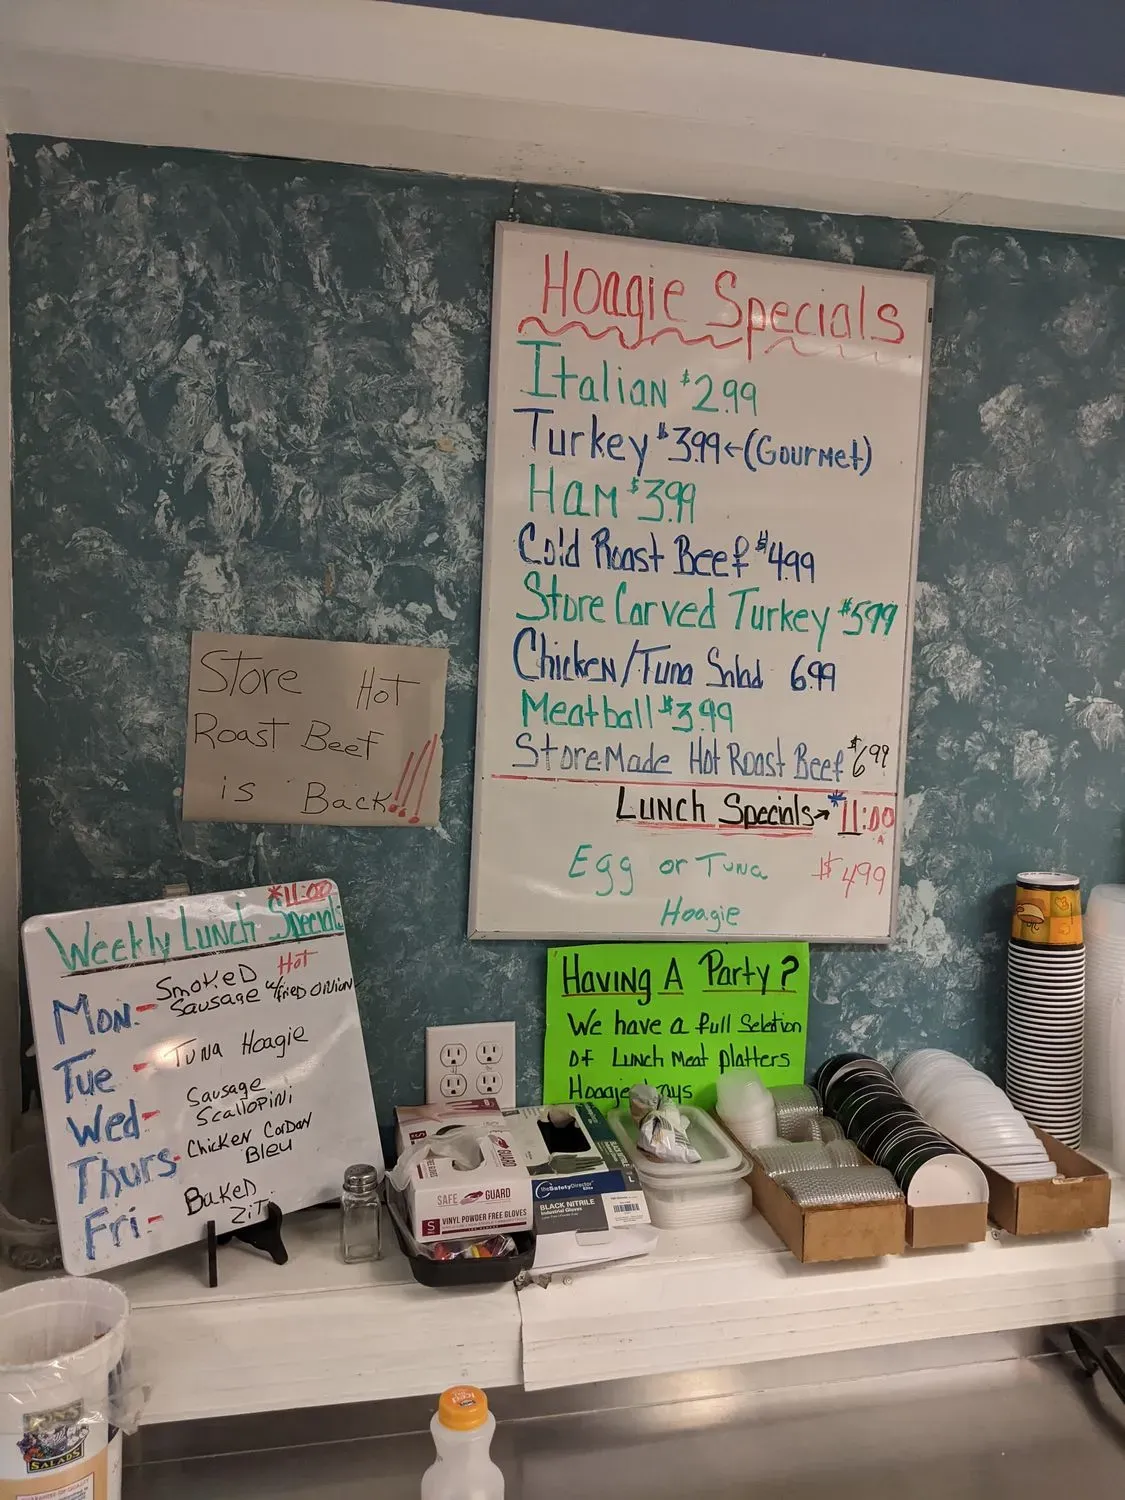 Hoagie Specials
Italian $2.99
Turkey $3.99←(Gourmet)
Ham $3.99
Cold Roast Beef $4.99
Store Carved Turkey $5.99
Chicken/Tuna Salad 6.99
Meatball $3.99
Store Made Hot Roast Beef $6.99
Lunch Specials→ *11:00
Egg or Tuna $4.99
Hoagie
Store Hot
Roast Beef
is Back!!!
*11:00
Weekly Lunch Specials
Mon.- Smoked Hot
Sausage w/ fried Onion
Tue - Tuna Hoagie
Wed- Sausage
Scallopini
Thurs- Chicken Cordan
Bleu
Fri- Baked
Ziti
Having A Party?
We have a full Selection
Of Lunch Meat platters
Hoagie
SAFE GUARD
S VINYL POWDER FREE GLOVES
theSafetyDirector
BLACK NITRILE
Industrial Gloves
L
SALADS